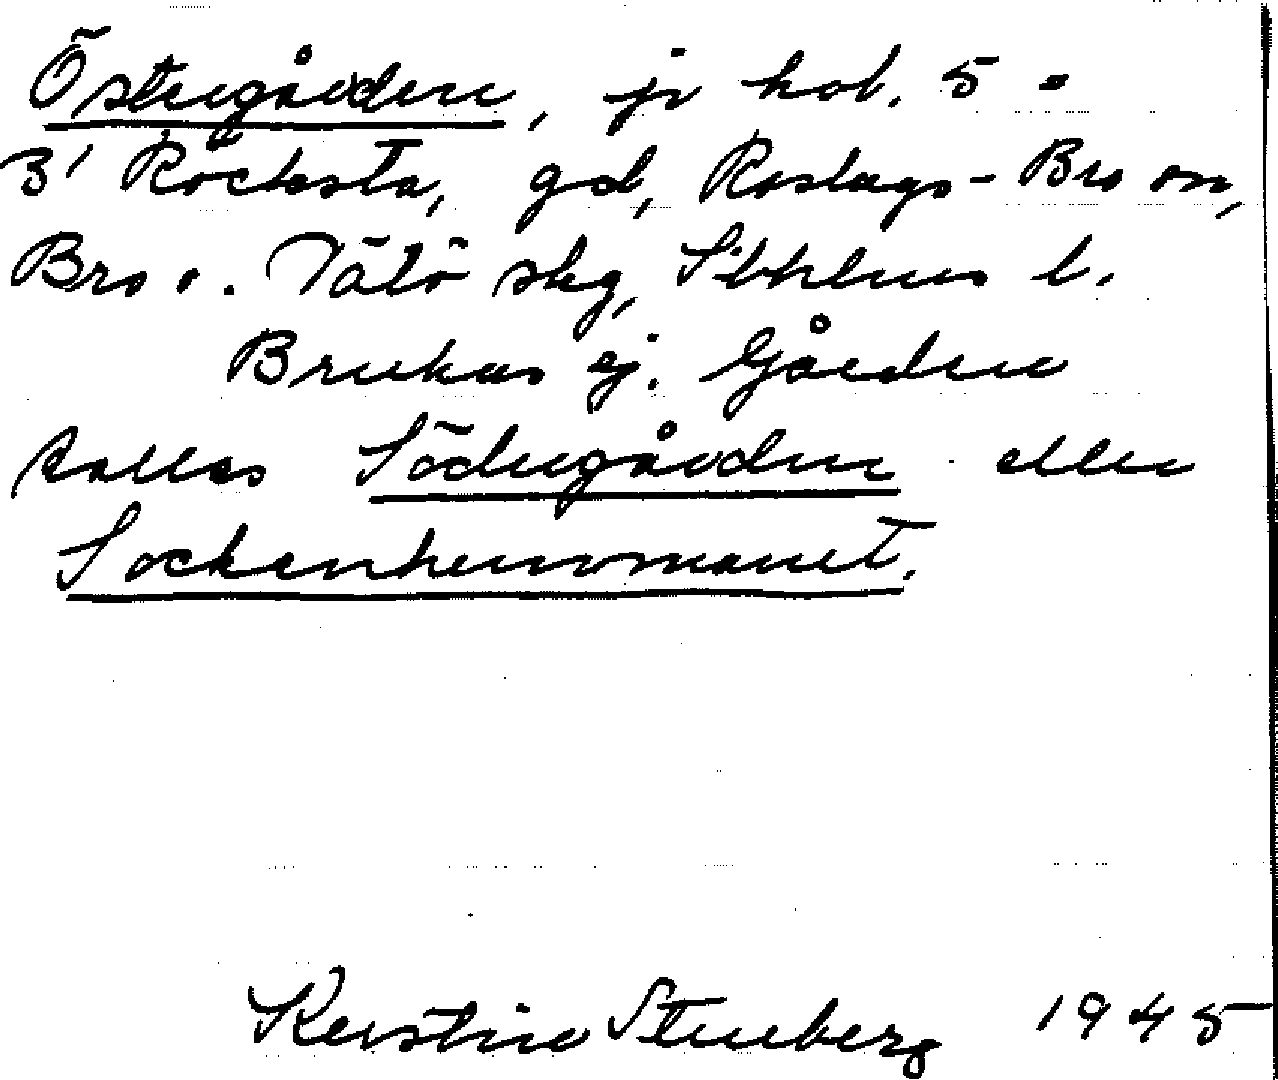 Östergården, jr kol. 5 o
3¹ Röcksta, gd, Roslags-Bro sn,
Bro o. Vätö skg, Sthlms l.
Brukas ej. Gården
kallas Södergården eller
Sockenhemmanet.
Kerstin Stenberg 1945